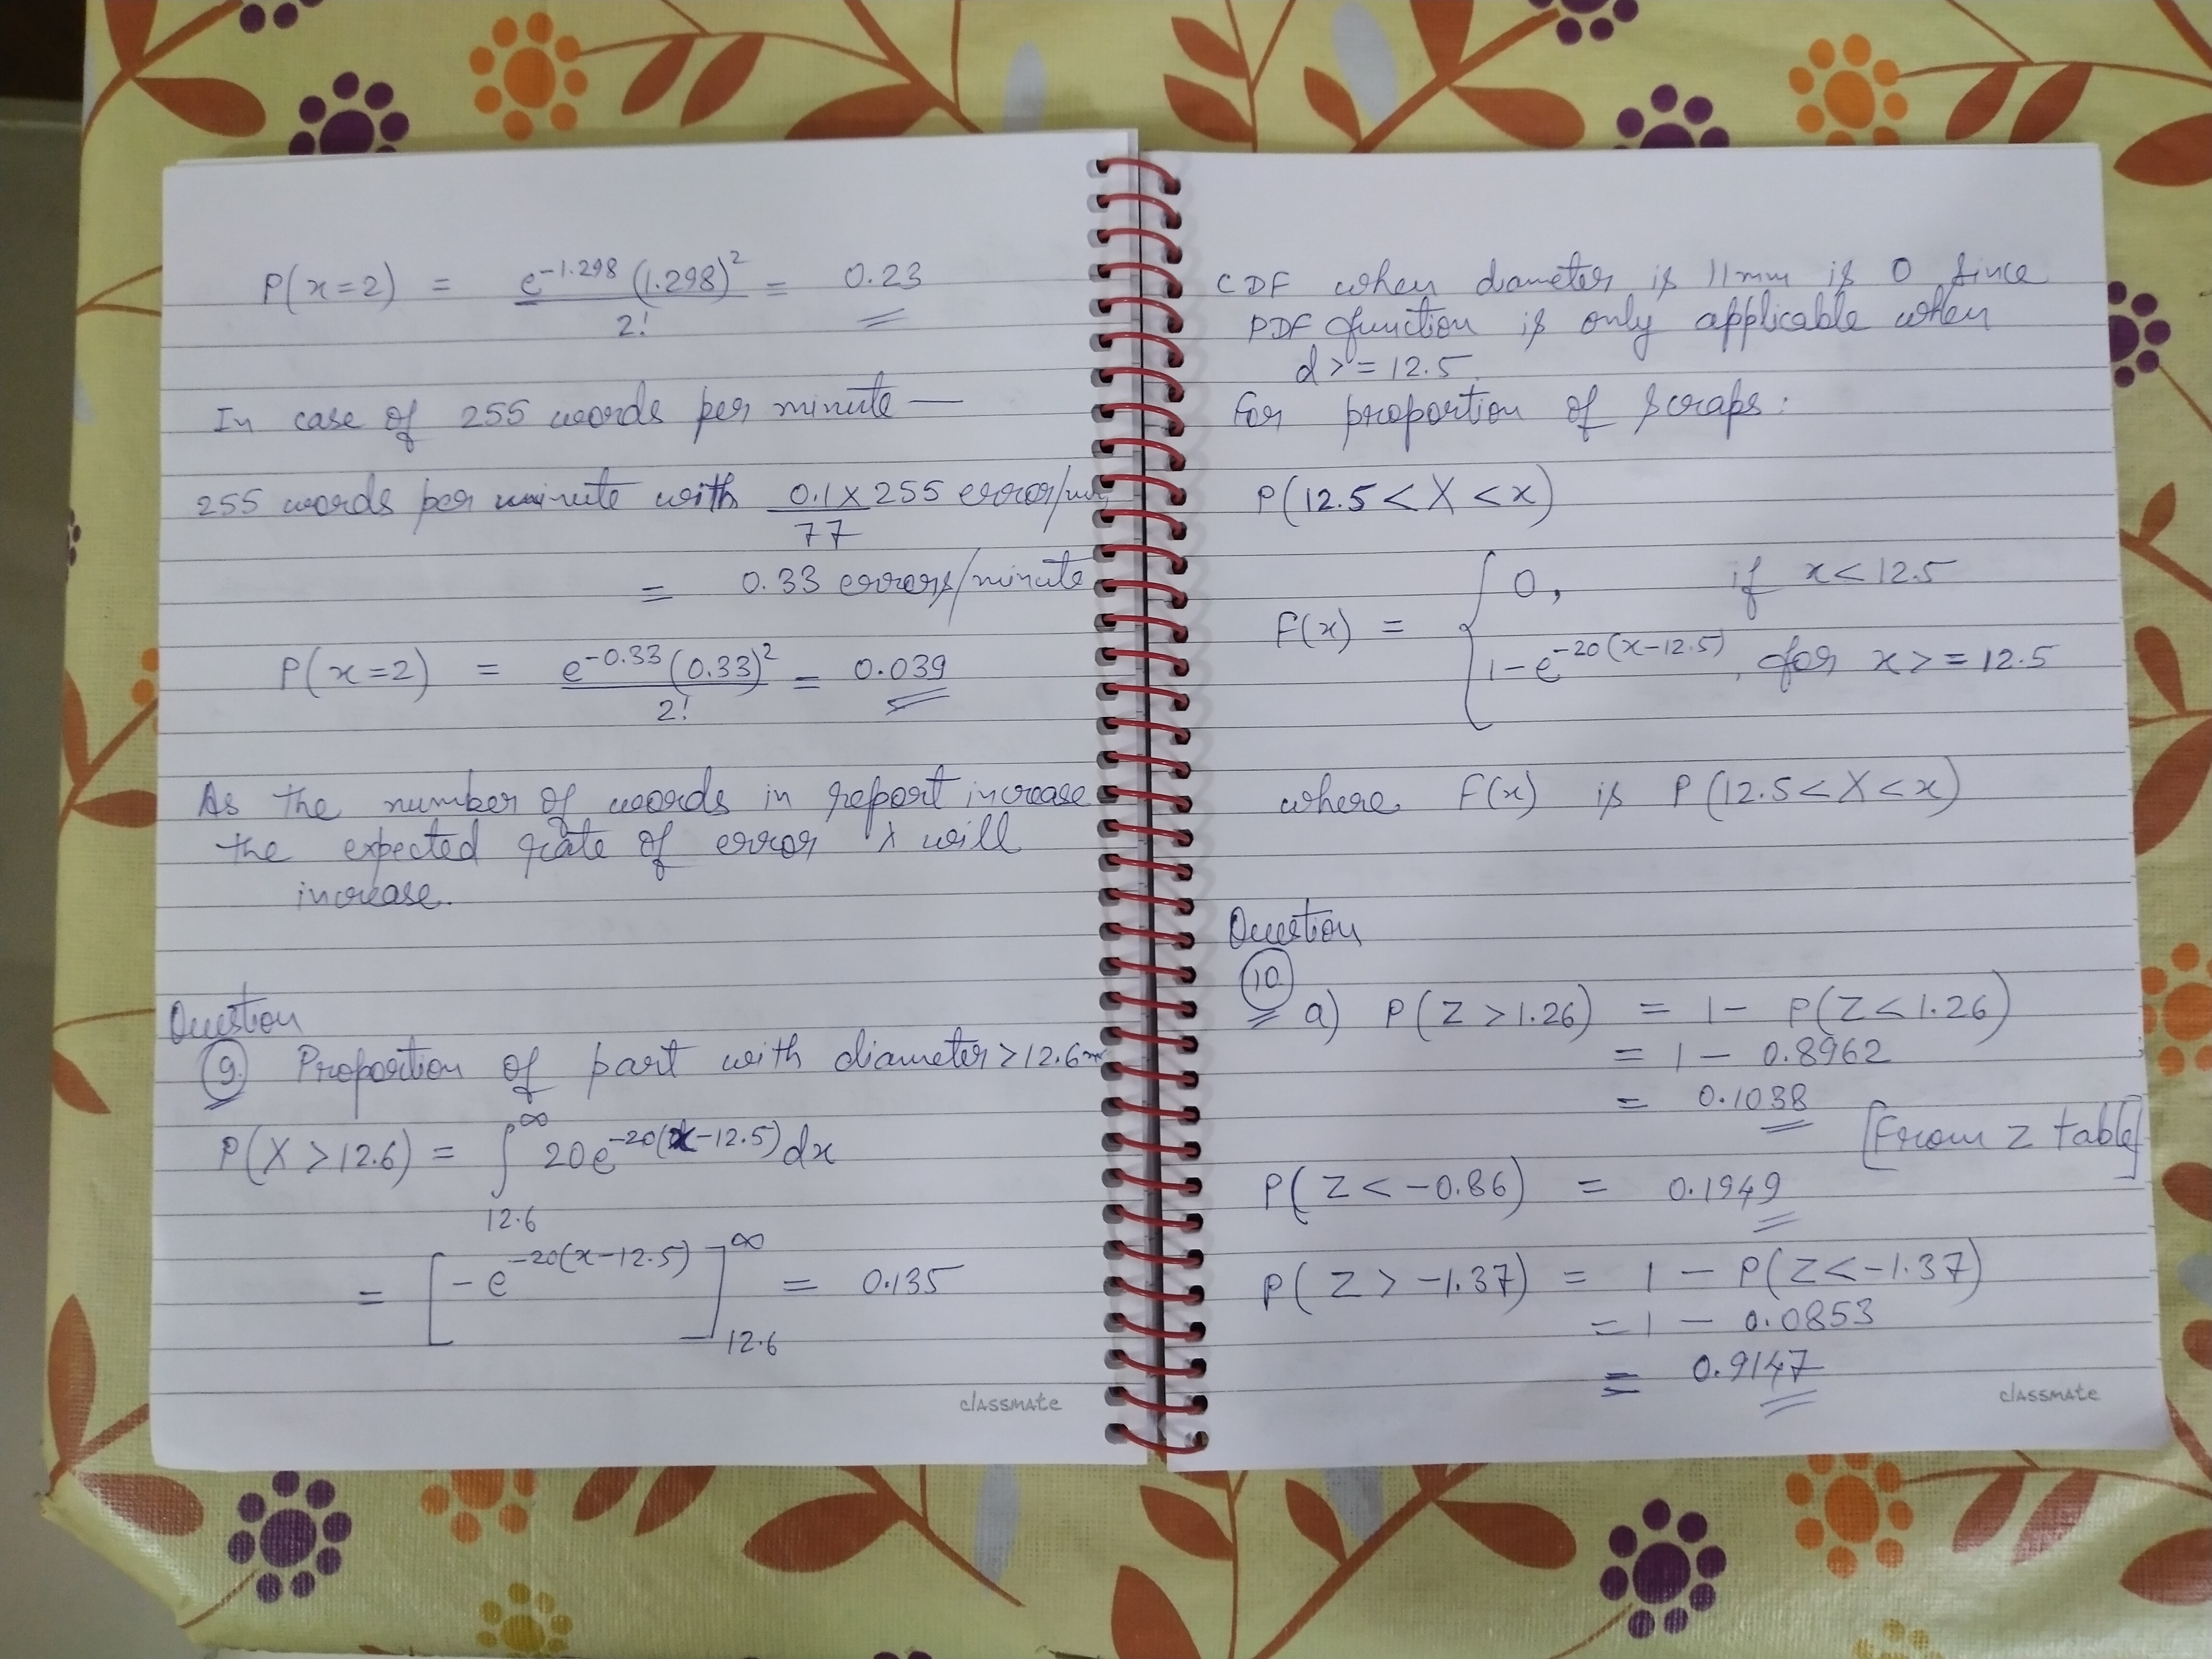 P(x=2) = e^-1.298 (1.298)^2 / 2! = 0.23
In case of 255 words per minute —
255 words per minute with 0.1 × 255 / 77 error/min
= 0.33 errors/minute
P(x=2) = e^-0.33 (0.33)^2 / 2! = 0.039
As the number of words in report increase
the expected rate of error λ will
increase.
Question
9. Proportion of part with diameter > 12.6mm
P(X > 12.6) = ∫_12.6^∞ 20e^-20(x-12.5) dx
= [-e^-20(x-12.5)]_12.6^∞ = 0.135
classmate
CDF when diameter is 11mm is 0 since
PDF function is only applicable when
d >= 12.5
For proportion of scraps:
P(12.5 < X < x)
F(x) = { 0, if x < 12.5
1 - e^-20(x-12.5), for x >= 12.5
where F(x) is P(12.5 < X < x)
Question
10 a) P(Z > 1.26) = 1 - P(Z < 1.26)
= 1 - 0.8962
= 0.1038 [From Z table]
P(Z < -0.86) = 0.1949
P(Z > -1.37) = 1 - P(Z < -1.37)
= 1 - 0.0853
= 0.9147
classmate